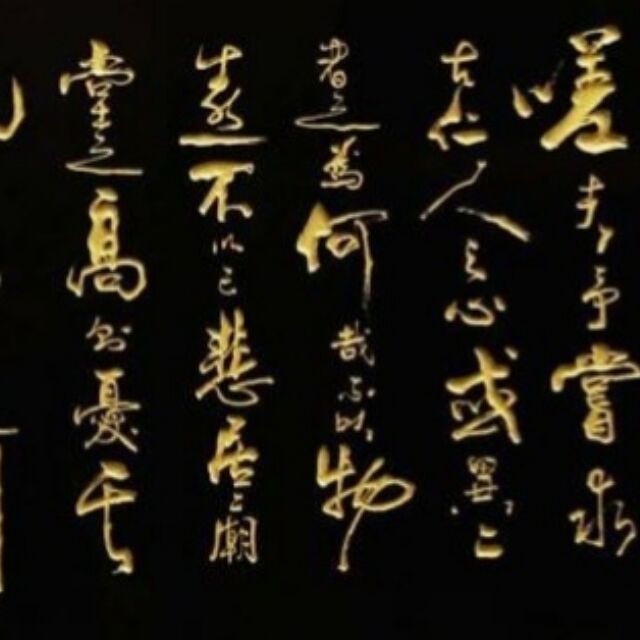 嗟夫予嘗求
古仁人之心或異二
者之為何哉不以物
喜不以己悲居廟
堂之高則憂其